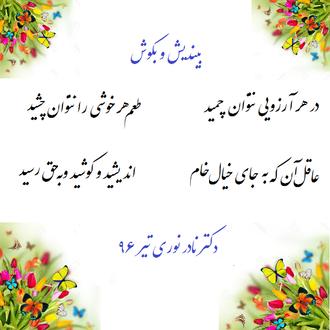 بیندیش و بکوش
در هر آرزویی نتوان چمید طعم هر خوشی را نتوان چشید
عاقل آن که به جای خیال خام اندیشید و کوشید و به حق رسید
دکتر نادر نوری تیر ۹۶